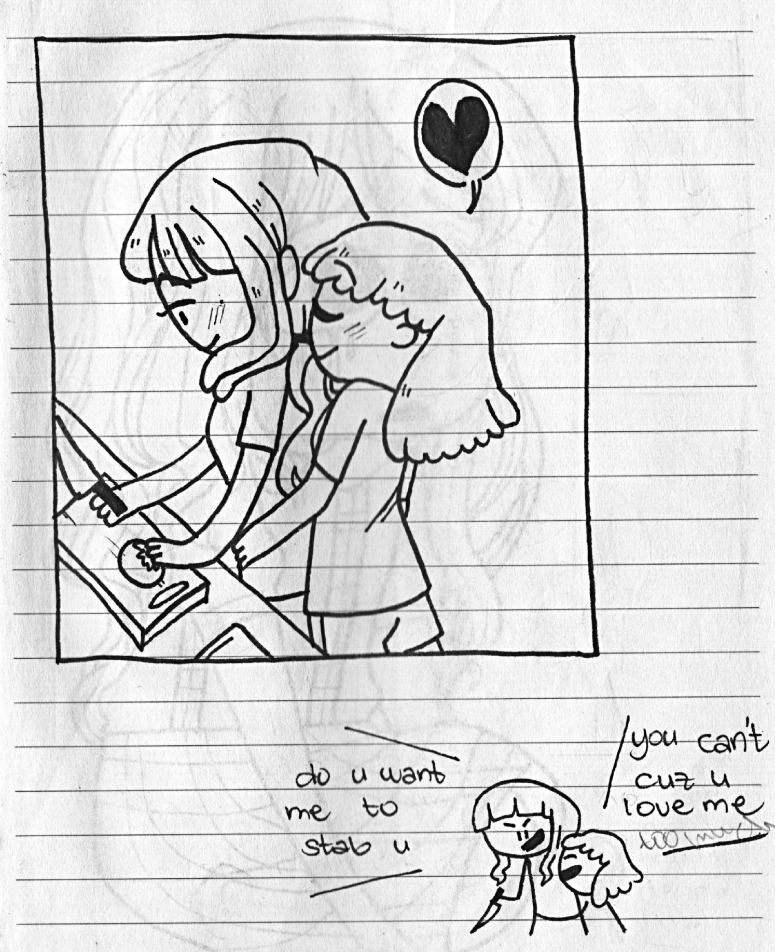 do u want
me to
stab u
you can't
cuz u
love me
too much